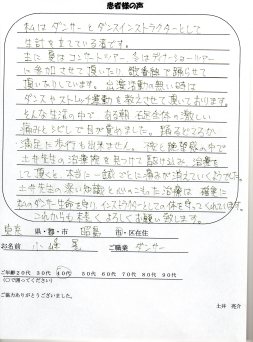 患者様の声
私はダンサーとダンスインストラクターとして
生計を立てている者です。
主に夏はコンサートツアー、冬はディナーショーツアー
に参加させて頂いたり、歌番組で踊らせて
頂いたりしています。出演活動の無い時は
ダンスやストレッチ運動を教えさせて頂いております。
そんな生活の中で、ある朝 右足全体の激しい
痛みとシビレで目が覚めました。踊るどころか
満足に歩行も出来ません。不安と絶望感の中で
土井先生の治療院を見つけて駆け込み、治療を
して頂くと、本当に一回ごとに痛みが消えていくようでした。
土井先生の深い知識と心のこもった治療は、確実に
私のダンサー生命を守り、インストラクターとしての体を守ってくれています。
これからも末長くよろしくお願い致します。
東京 県・都・市 昭島 市・区在住
お名前 小 篤 ご職業 ダンサー
ご年齢20代 30代 40代 50代 60代 70代 80代 90代
(○で囲ってください)
ご協力ありがとうございました。
土井 亮介